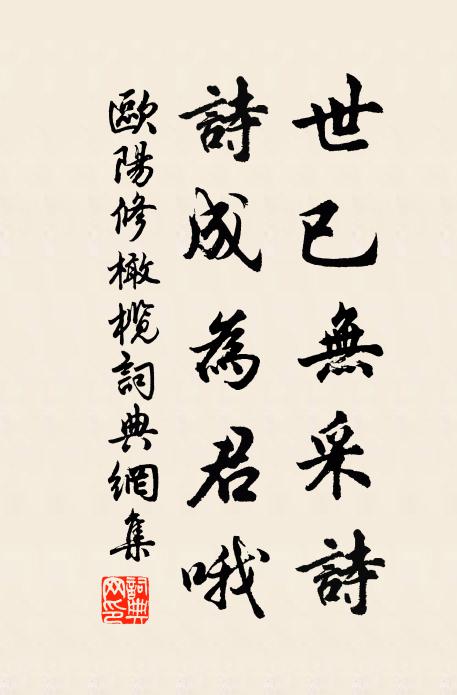 世已無采詩
詩成為君哦
歐陽修橄欖詞典網集
詞典
网印